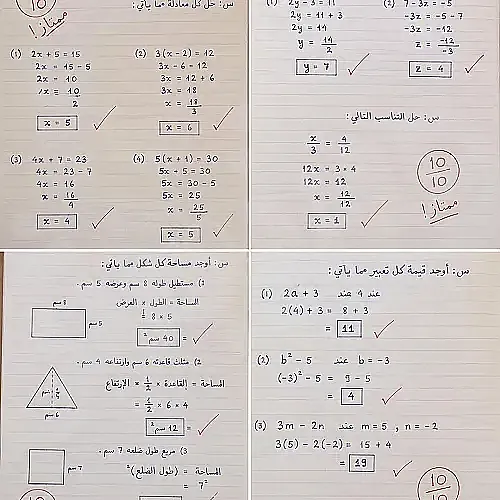 10
ممتاز!
س: حل كل معادلة مما يأتي:
(1) 2x + 5 = 15
2x = 15 - 5
2x = 10
x = 10/2
x = 5
(2) 3(x - 2) = 12
3x - 6 = 12
3x = 12 + 6
3x = 18
x = 18/3
x = 6
(3) 4x + 7 = 23
4x = 23 - 7
4x = 16
x = 16/4
x = 4
(4) 5(x + 1) = 30
5x + 5 = 30
5x = 30 - 5
5x = 25
x = 25/5
x = 5
(1) 2y - 3 = 11
2y = 11 + 3
2y = 14
y = 14/2
y = 7
(2) 7 - 3z = -5
-3z = -5 - 7
-3z = -12
z = -12/-3
z = 4
س: حل التناسب التالي:
x/3 = 4/12
12x = 3 × 4
12x = 12
x = 12/12
x = 1
10/10
ممتاز!
س: أوجد مساحة كل شكل مما يأتي:
1) مستطيل طوله 8 سم وعرضه 5 سم.
8 سم
5 سم
المساحة = الطول × العرض
= 8 × 5
= 40 سم²
2) مثلث قاعدته 6 سم وارتفاعه 4 سم.
6 سم
المساحة = القاعدة × 1/2 × الارتفاع
= 1/2 × 6 × 4
= 12 سم²
3) مربع طول ضلعه 7 سم.
7 سم
المساحة = (طول الضلع)²
= 7²
س: أوجد قيمة كل تعبير مما يأتي:
(1) 2a + 3 عند 4 عند
2(4) + 3 = 8 + 3
= 11
(2) b² - 5 عند b = -3
(-3)² - 5 = 9 - 5
= 4
(3) 3m - 2n عند m = 5 , n = -2
3(5) - 2(-2) = 15 + 4
= 19
10
10